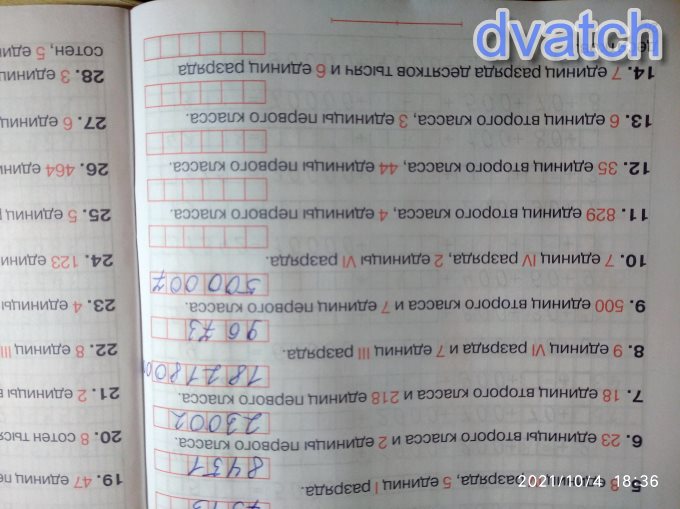 5. 8 единиц разряда, 5 единиц I разряда.
6. 23 единицы второго класса и 2 единицы первого класса.
23002
7. 18 единиц второго класса и 218 единиц первого класса.
8. 9 единиц VI разряда и 7 единиц III разряда.
9. 500 единиц второго класса и 7 единиц первого класса.
500 007
10. 7 единиц IV разряда, 2 единицы VI разряда.
11. 829 единиц второго класса, 4 единицы первого класса.
12. 35 единиц второго класса, 44 единицы первого класса.
13. 6 единиц второго класса, 3 единицы первого класса.
14. 7 единиц разряда десятков тысяч и 6 единиц разряда
19. 47 
20. 8 сотен
21. 2
22. 8 единиц III
23. 4
24. 123
25. 5
26. 464
27. 6
28. 3
сотен, 5
dvatch
2021/10/4 18:36